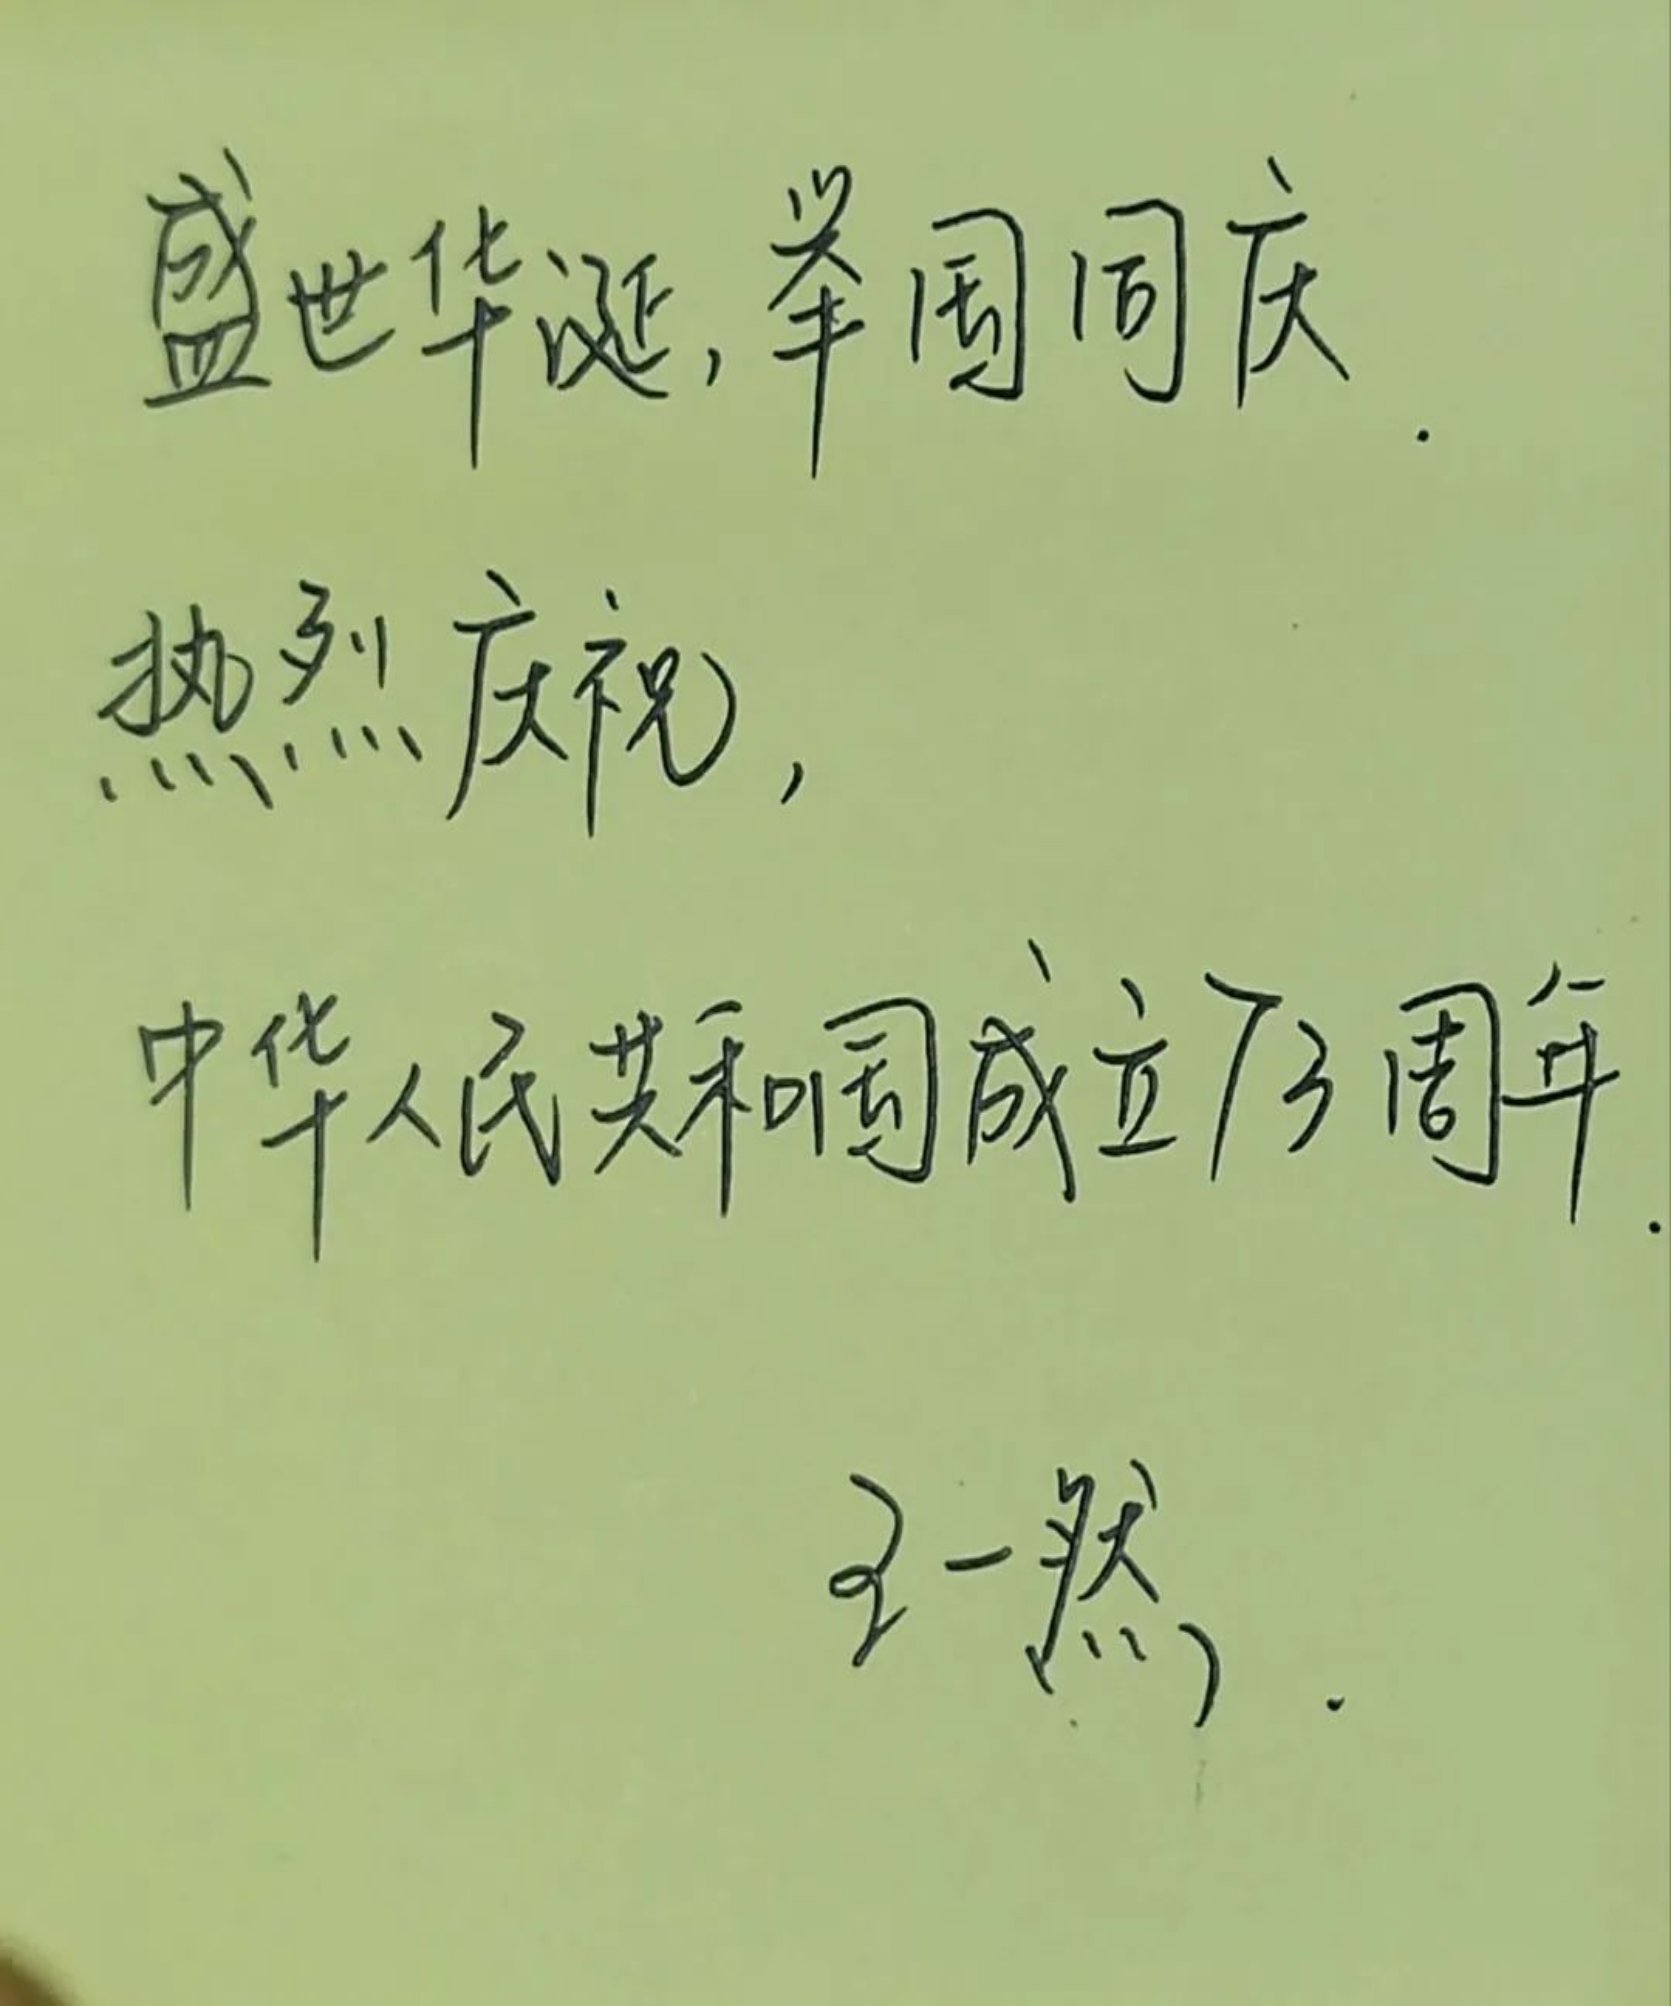 盛世华诞,举国同庆.
热烈庆祝,
中华人民共和国成立73周年.
王一然.